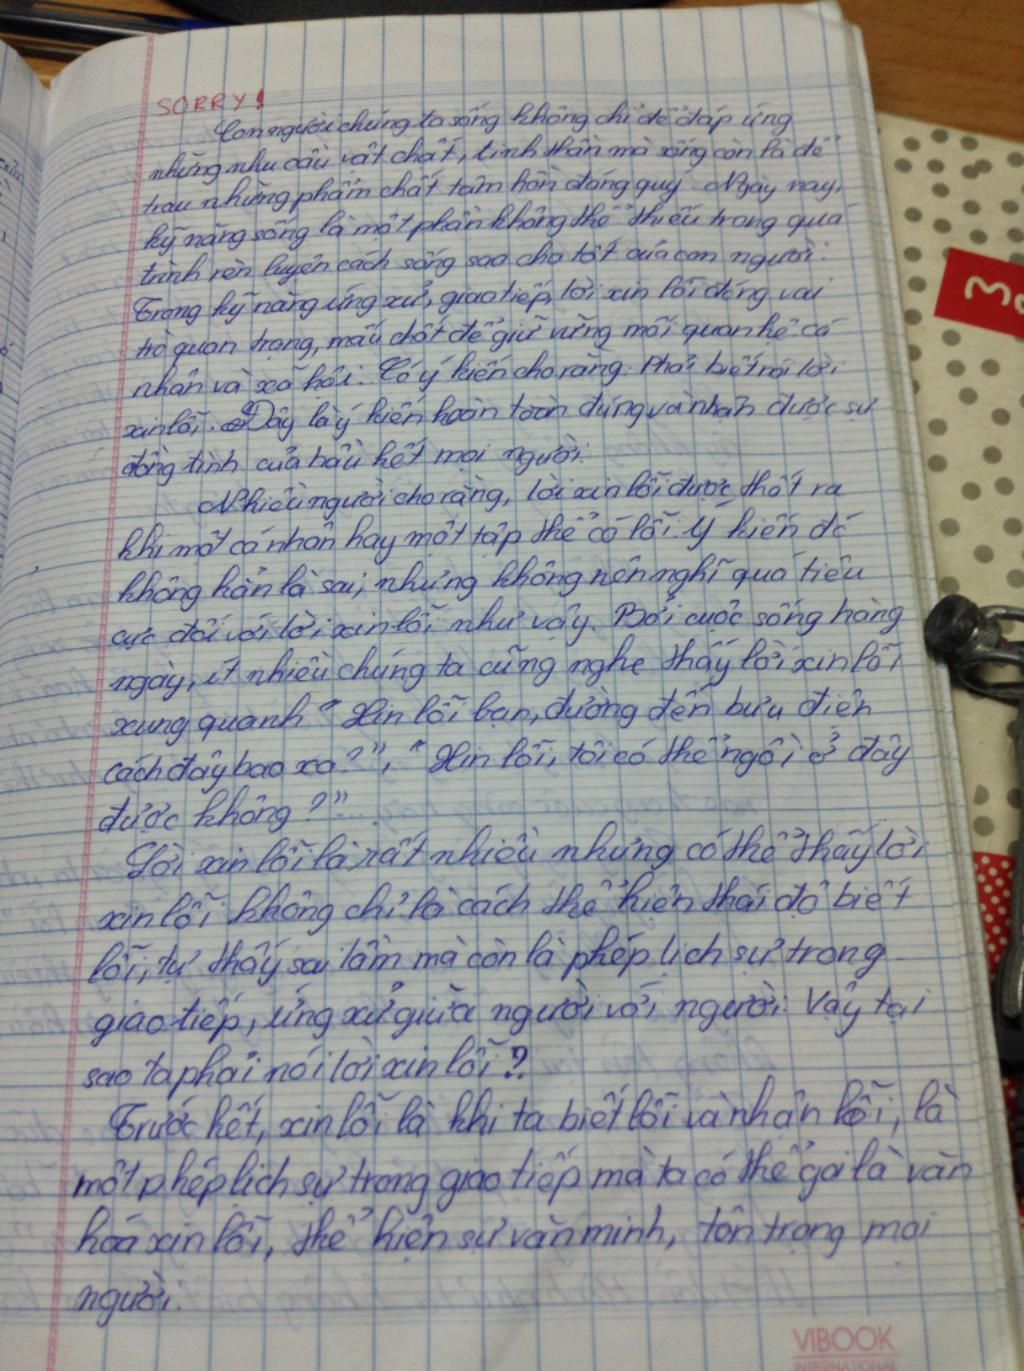 SORRY!
Con người chúng ta sống không chỉ để đáp ứng
những nhu cầu vật chất, tinh thần mà sống còn là để
trau những phẩm chất tâm hồn đáng quý. Ngày nay,
kỹ năng sống là một phần không thể thiếu trong quá
trình rèn luyện cách sống sao cho tốt của con người.
Trong kỹ năng ứng xử, giao tiếp, lời xin lỗi đóng vai
trò quan trọng, mấu chốt để giữ vững mối quan hệ cá
nhân và xã hội. Có ý kiến cho rằng: Phải biết nói lời
xin lỗi. Đây là ý kiến hoàn toàn đúng và nhận được sự
đồng tình của hầu hết mọi người.
Nhiều người cho rằng, lời xin lỗi được thốt ra
khi một cá nhân hay một tập thể có lỗi. Ý kiến đó
không hẳn là sai, nhưng không nên nghĩ quá tiêu
cực đối với lời xin lỗi như vậy. Bởi cuộc sống hàng
ngày, ít nhiều chúng ta cũng nghe thấy lời xin lỗi
xung quanh "Xin lỗi bạn, đường đến bưu điện
cách đây bao xa?", "Xin lỗi, tôi có thể ngồi ở đây
được không?"...
Lời xin lỗi là rất nhiều nhưng có thể thấy lời
xin lỗi không chỉ là cách thể hiện thái độ biết
lỗi, tự thấy sai lầm mà còn là phép lịch sự trong
giao tiếp, ứng xử giữa người với người. Vậy tại
sao ta phải nói lời xin lỗi?
Trước hết, xin lỗi là khi ta biết lỗi và nhận lỗi, là
một phép lịch sự trong giao tiếp mà ta có thể gọi là văn
hoá xin lỗi, thể hiện sự văn minh, tôn trọng mọi
người.
VIBOOK
INTERNATIONAL